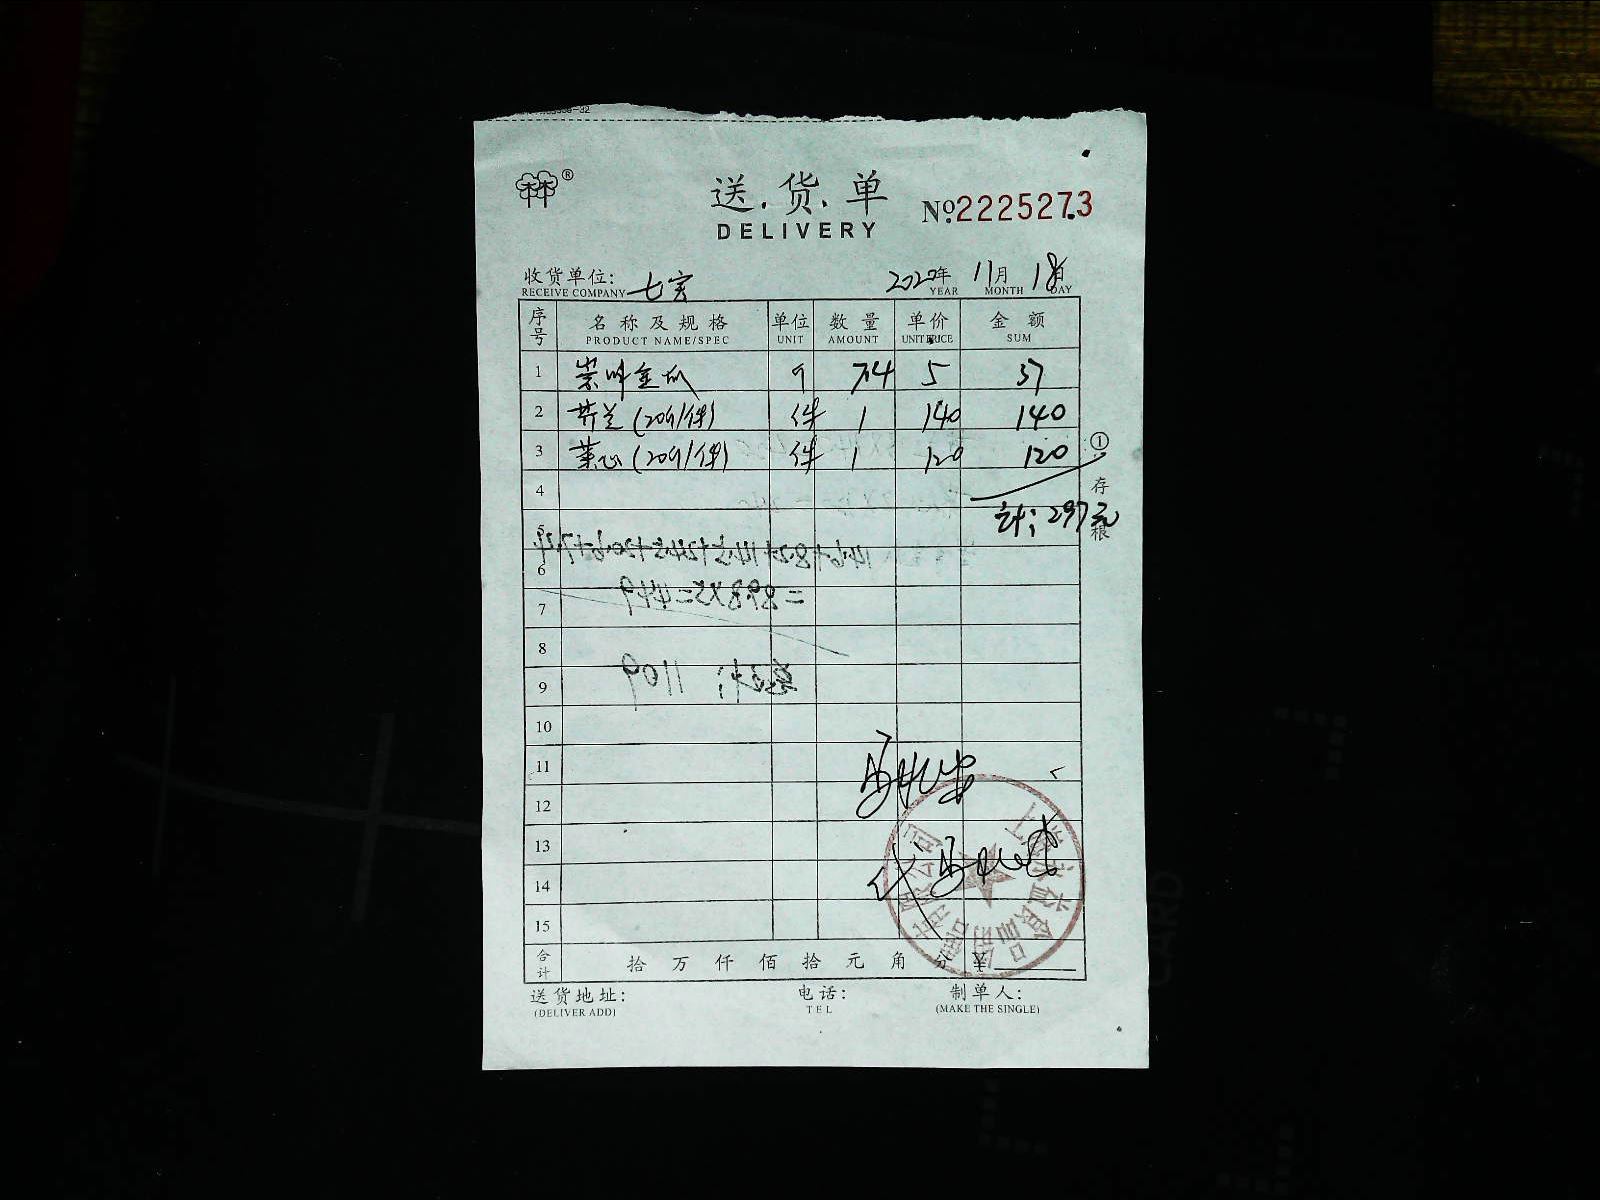 ®
送.货.单
DELIVERY
№.2225273
收货单位: 七宝
RECEIVE COMPANY
2020年 11月 18日
YEAR MONTH DAY
序号 名称及规格 单位 数量 单价 金额
PRODUCT NAME/SPEC UNIT AMOUNT UNIT PRICE SUM
1 崇明金瓜 斤 7.4 5 37
2 芥兰(20斤/件) 件 1 140 140
3 菜心(20斤/件) 件 1 120 120
4
计: 297元
5
6
7
8
9
10
11
12
13
14
15
① 存根
14.6+8.2+14.5+24.5+20.6+7.4
=89.8×5=449
总计: 1109
合计 拾 万 仟 佰 拾 元 角 分
送货地址: 电话: 制单人:
(DELIVER ADD) TEL (MAKE THE SINGLE)